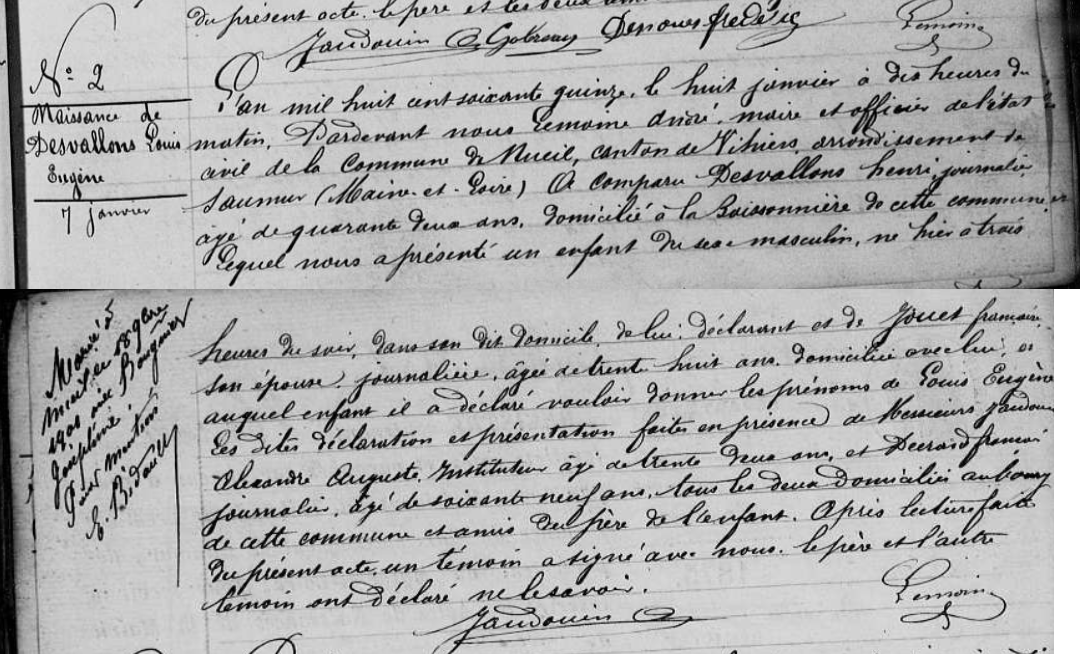 du présent acte. le père et les deux
Jaudouin Gobreau Desnoues frédéric Lemoine
N° 2
Naissance de
Desvallons Louis
Eugène
7 janvier
L'an mil huit cent soixante quinze, le huit janvier à dix heures du
matin, Pardevant nous Lemoine andré, maire et officier de l'état
civil de la Commune de Nueil, canton de Vihiers, arrondissement de
Saumur (Maine-et-Loire) A Comparu Desvallons henri, journalier
âgé de quarante deux ans, domicilié à la Boissonnière de cette commune,
Lequel nous a présenté un enfant du sexe masculin, né hier à trois
Marié à
Nueil le
1901 avec
Joséphine
Pour mention
E. Bidault
heures du soir, dans son dit domicile, de lui déclarant et de Jouet françoise,
son épouse, journalière, âgée de trente huit ans, domiciliée avec lui, et
auquel enfant il a déclaré vouloir donner les prénoms de Louis Eugène
Les dites déclaration et présentation faites en présence de Messieurs Jaudouin
Alexandre Auguste, Instituteur âgé de trente deux ans, et françois
journalier, âgé de soixante neuf ans, tous les deux domiciliés au bourg
de cette commune et amis du père de l'enfant. Après lecture faite
du présent acte, un témoin a signé avec nous. le père et l'autre
témoin ont déclaré ne le savoir.
Jaudouin A Lemoine